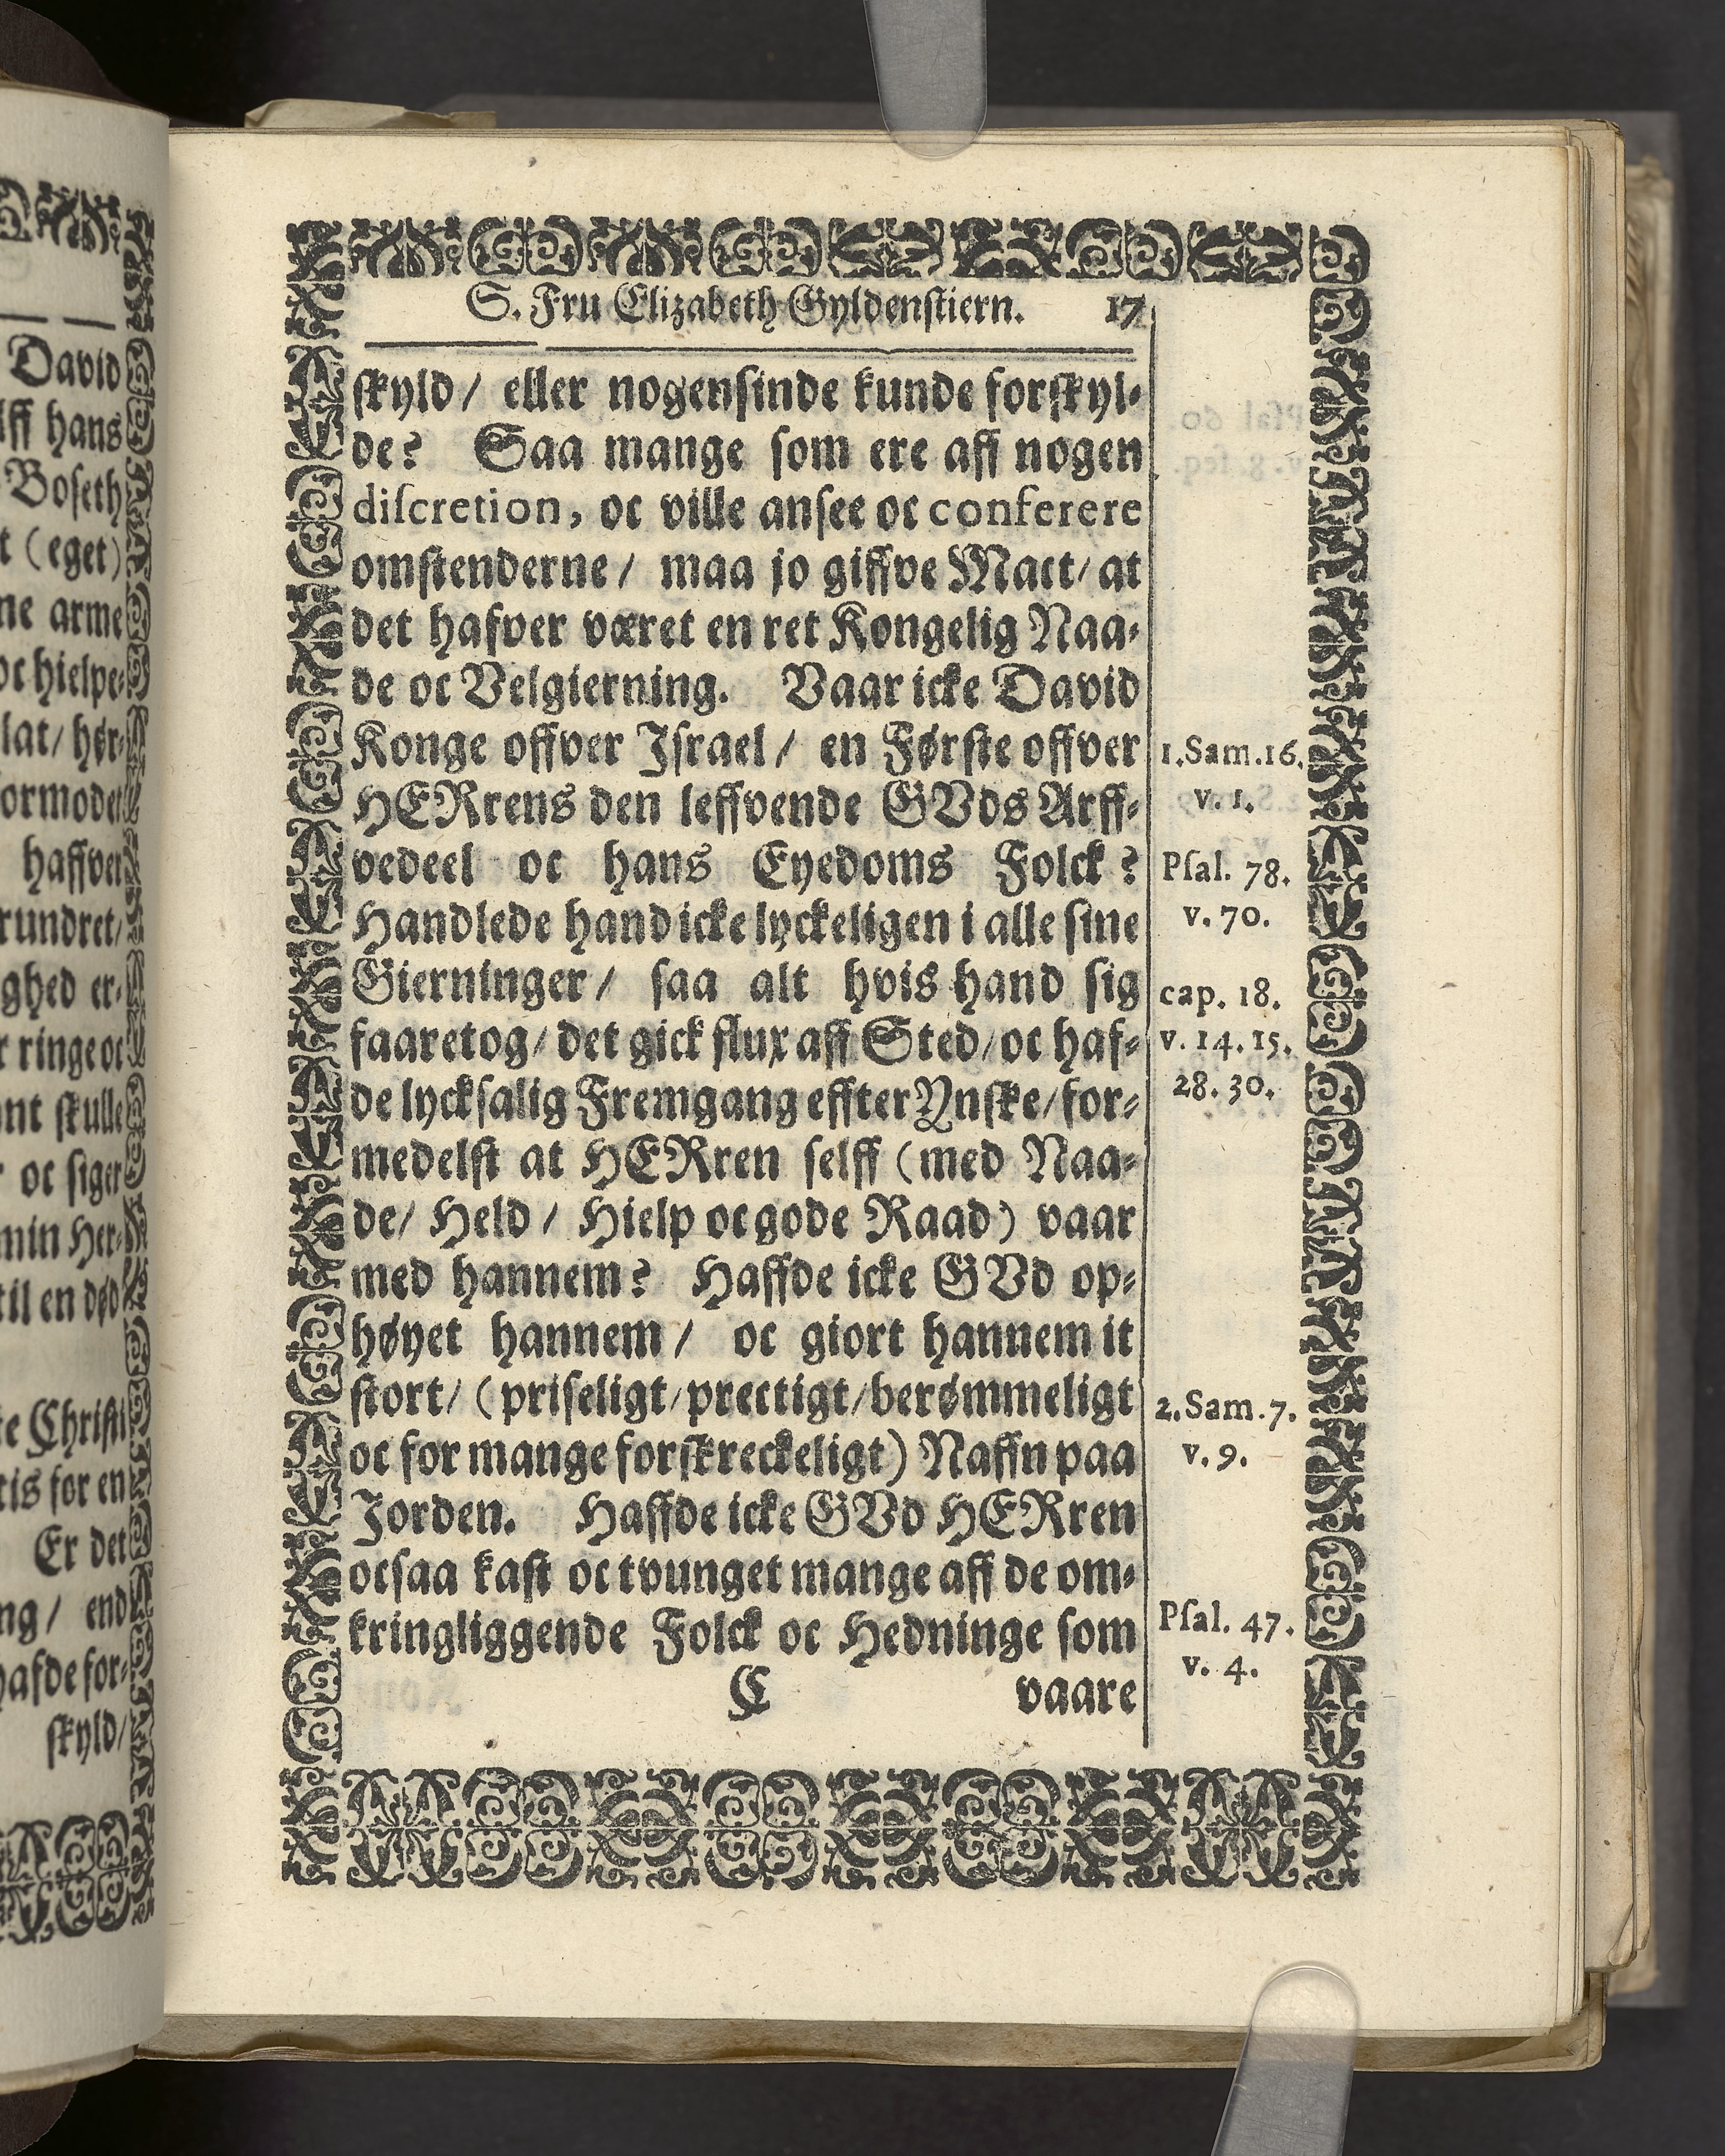 David
lff hans
Boseth
t (eget)
ne arme
oc hielpe-
lat/ hør-
ormodet
haffver
rundret/
ghed er-
r ringe oc
ont skulle
r oc siger
min Her-
til en død
te Christi
tis for en
Er det
ng / end
hafde for-
skyld/
S. Fru Elizabeth Gyldenstiern. 17
skyld / eller nogensinde kunde forskyl-
de? Saa mange som ere aff nogen
discretion, oc ville ansee oc conferere
omstenderne / maa jo giffve Mact / at
det hafver været en ret Kongelig Naa-
de oc Velgierning. Vaar icke David
Konge offver Israel / en Første offver
HERrens den leffvende GVds Arff-
vedeel oc hans Eyedoms Folck?
Handlede hand icke lyckeligen i alle sine
Gierninger / saa alt hvis hand sig
faaretog / det gick flux aff Sted / oc haf-
de lycksalig Fremgang effter Ynske / for-
medelst at HERren selff (med Naa-
de / Held / Hielp oc gode Raad) vaar
med hannem? Haffde icke GVd op-
høyet hannem / oc giort hannem it
stort / (priseligt / prectigt / berømmeligt
oc for mange forskreckeligt) Naffn paa
Jorden. Haffde icke GVd HERren
ocsaa kast oc tvunget mange aff de om-
kringliggende Folck oc Hedninge som
C vaare
1. Sam. 16.
v. 1.
Psal. 78.
v. 70.
cap. 18.
v. 14. 15.
28. 30.
2. Sam. 7.
v. 9.
Psal. 47.
v. 4.